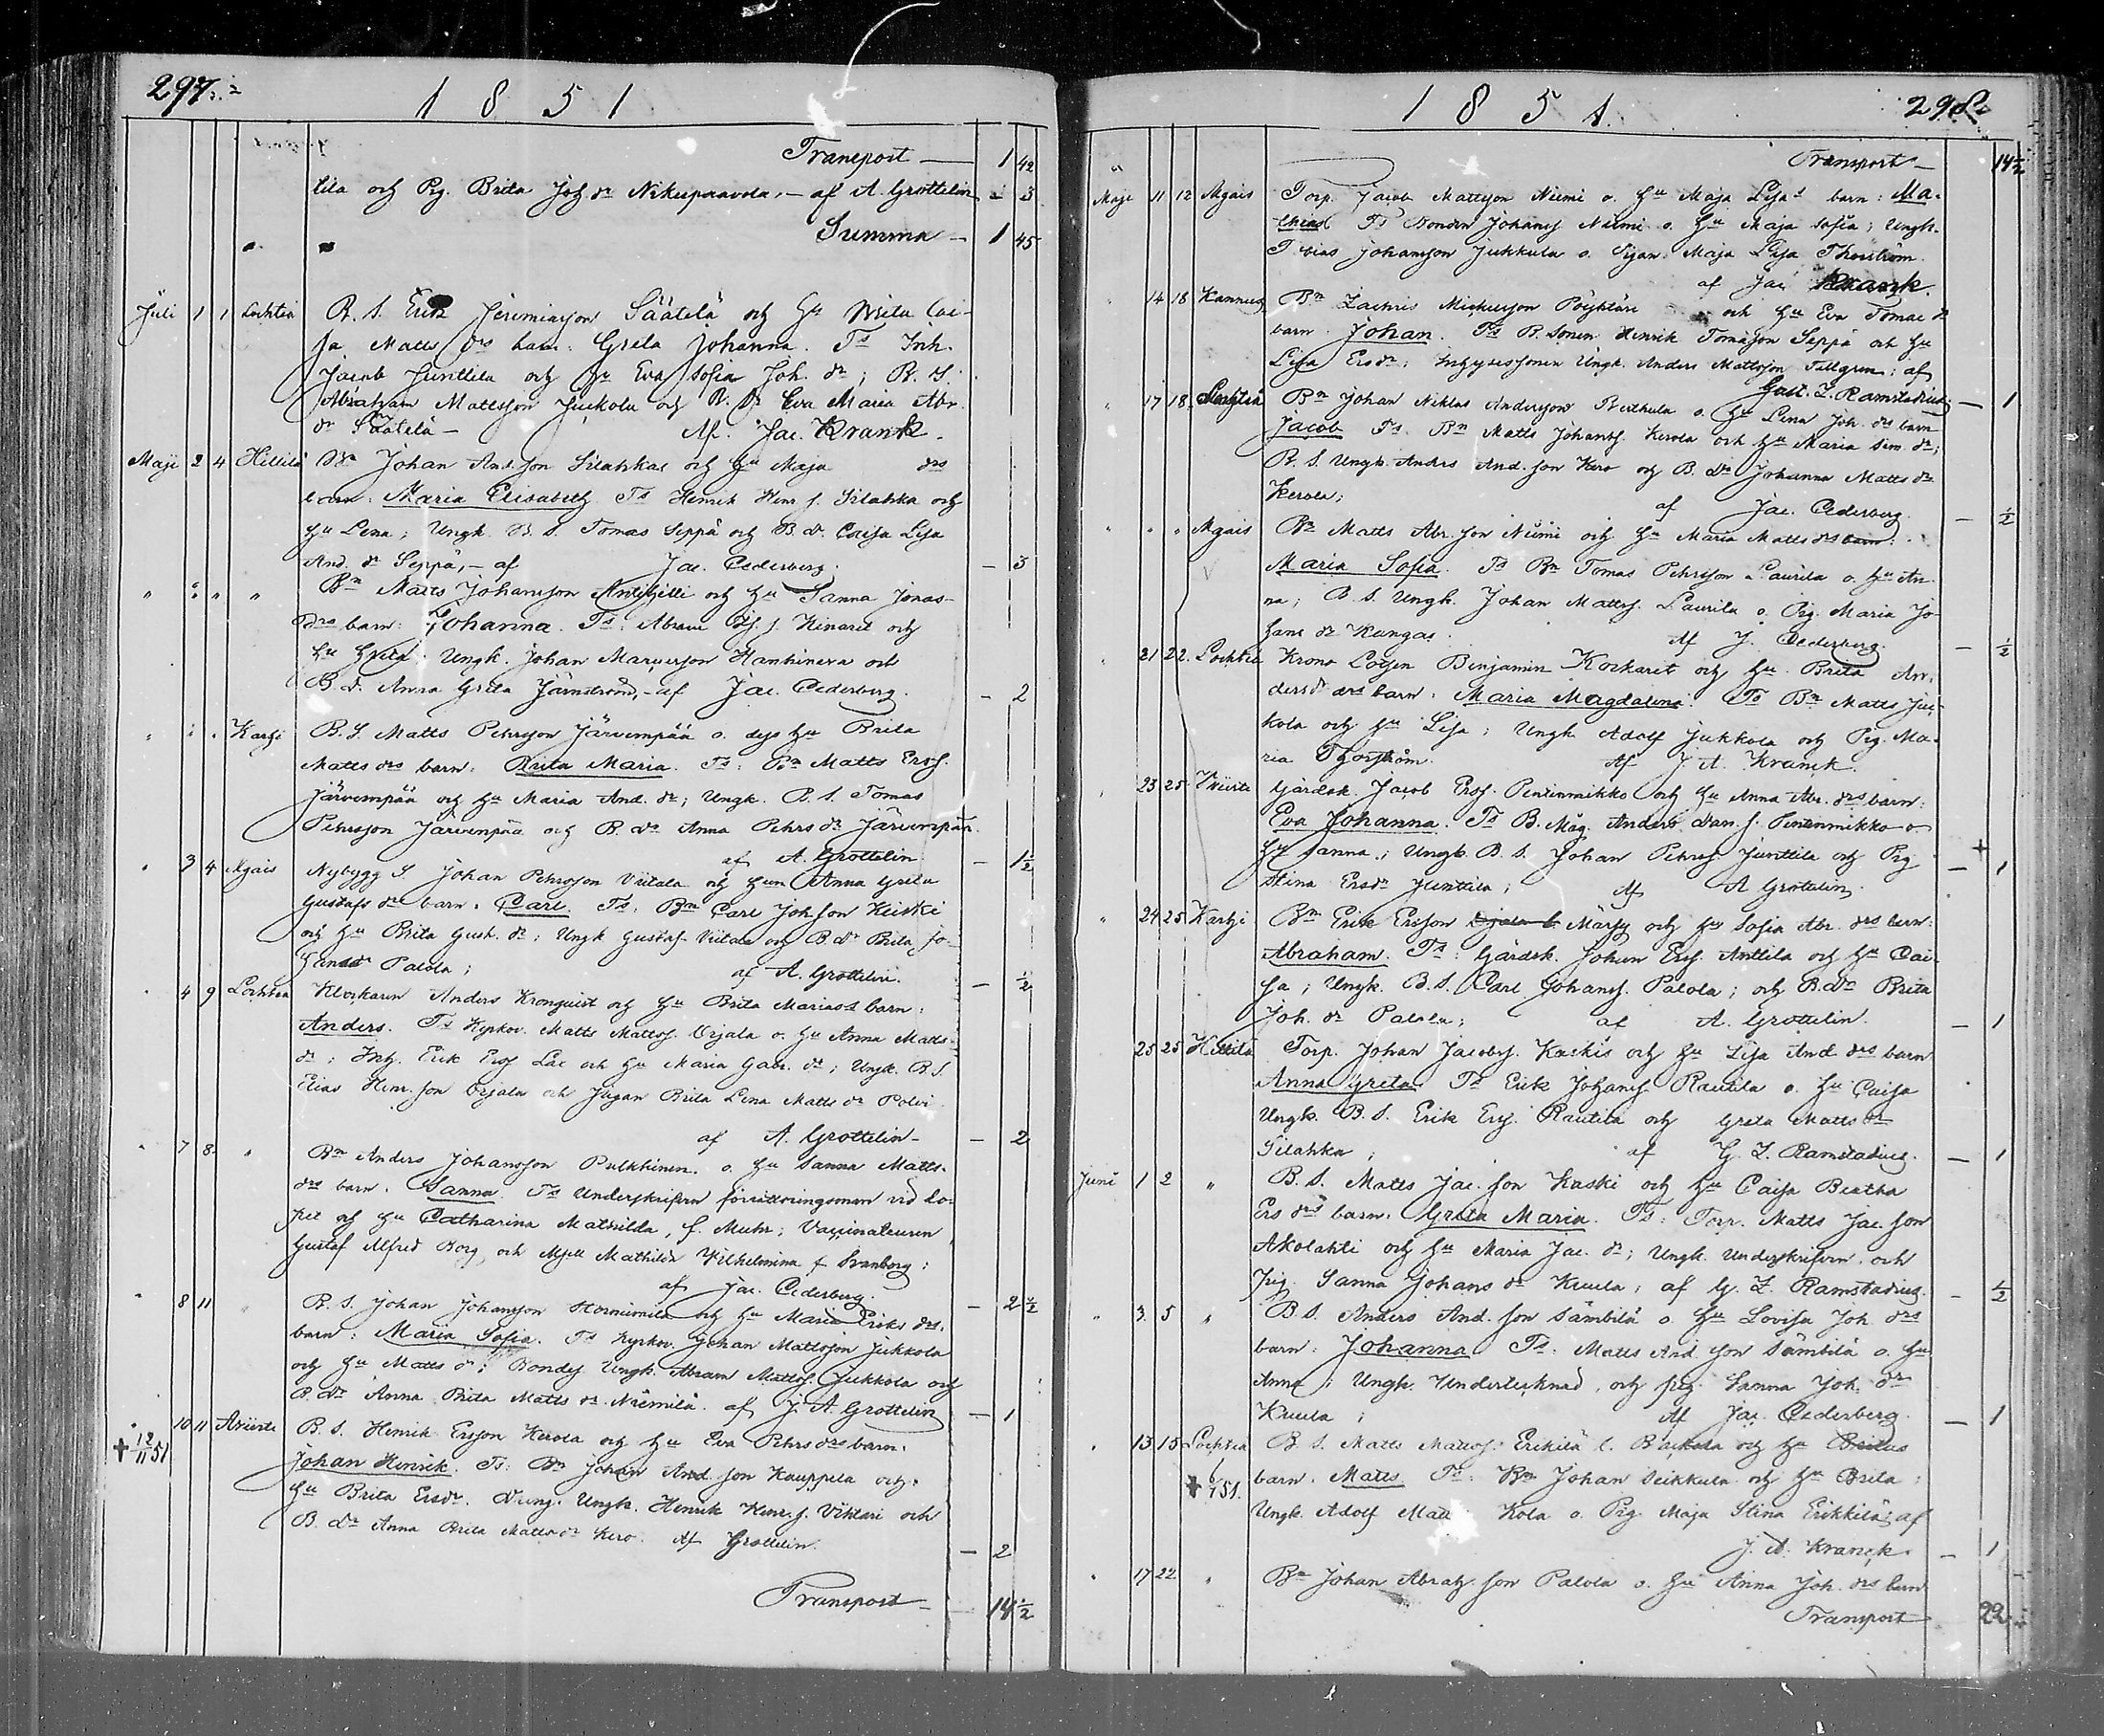 297.
1851
Transport — 1 42
tila och Pig. Brita Joh. dr Nikupaavola, — af A. Grottelin — 3
Summa — 1 45
Juli 1 1 Lochteå B. S. Erik Jeremiasson Säätelä och hu Brita Cai-
sa Matts drs barn: Greta Johanna. Ts Inh.
Jacob Junttila och hu Eva Sofia Joh. dr; B. S.
Abraham Mattsson Juckola och B. dr Eva Maria Abr.
dr Säätelä — Af. Jac. Kranck.
Maji 2 4 Hillilä Bn Johan And. son Silahka och hu Maja drs
barn: Maria Elisabeth. Ts Henrik Henr. s. Silahka och
hu Lena; Ungk. B. S. Tomas Seppä och B. dr Caisa Lisa
And. dr Seppä, — af Jac. Cederberg. — 3
" " " " Bn Matts Johansson och hu Sanna Jonas-
drs barn: Johanna. Ts. Abram s. Kinaret och
hu Greta. Ungk. Johan Hanhineva och
B. d. Anna Greta Järnström, — af Jac. Cederberg. — 2
" " . Karhi B. S. Matts Pehrsson Järvempää o. dess hu Brita
Matts drs barn: Brita Maria. Ts: Bn Matts Erss.
Järvempää och hu Maria And. dr; Ungk. B. S. Tomas
Pehrsson Järvenpää och B. dr Anna Pehrs dr Järvenpää
af A. Grottelin — 1½
" 3 4 Algais Nybygg S Johan Pehrsson Viitala och hun Anna Greta
Gustafs dr barn: Carl. Ts: Bn Carl Joh. son Keiski
och hu Brita Gust. dr; Ungk Gustaf Viitala och B. dr Brita Jo-
hansdr Palola; af A. Grottelin. — ½
" 4 9 Lochteå Klockaren Anders Kronquist och hu Brita Marias barn:
Anders. Ts Kyrkov. Matts Mattss. Orjala o. hu Anna Matts
dr; Inh. Erik Erss Lae och hu Maria Gabr. dr; Ungk. B. S.
Elias Henr. son Orjala och Jugan Brita Lena Matts dr Polvi
af A. Grottelin — — 2
" 7 8 " Bn Anders Johansson Pulkkinen o. hu Sanna Matts-
drs barn: Sanna. Ts Underskrifven förrättningsman vid do-
pet och hu Catharina Mathilda, f. Muhr; Vaccinateuren
Gustaf Alfred Borg och Mjell Mathilda Wilhelmina f. Svanberg;
af Jac. Cederberg. — 2½
" 8 11 " B. S. Johan Johansson och hu Maria Eriks drs.
barn: Maria Sofia. Ts Kyrkov. Johan Mattsson Jukkola
och hu Matts dr; Bondes. Ungk. Abram Mattss. Jukkola och
B. dr Anna Brita Matts dr Niemilä. af J. A. Grottelin — 1
" 10 11 B. S. Henrik Ersson Kerola och hu Eva Pehrs drs barn:
+ 12/11 51 Johan Henrik. Ts: Bn Johan And. son Kauppila och
hu Brita Ersdr. Dreng. Ungk. Henrik Henr. s. Viktari och
B. dr Anna Brita Matts dr Kero. Af Grottelin. — 2
Transport — 14½
1851.
298
Transport — 14½
Maji 11 12 Algais Torp. Jacob Mattsson Niemi o. hu Maja Lisas barn: Ma-
thias. Ts Bonden Johans Niemi o. hu Maja Sofia; Ungk.
Tobias Johansson Jukkula o. Pigan Maja Lisa Thorström.
af Jac Kranck.
" 14 18 Kannus Bn Zachris Mickelsson Pöyktäre och hu Eva Tomas dr
barn: Johan. Ts B. Sonen Henrik Tomasson Seppä och hu
Lisa Ersdr; Inhysessonen Ungk. Anders Mattsson Tallgren: af
Gust. Z. Ramstadius. — 1
" 17 18 Lochteå Bn Johan Niklas Andersson Berthula o. hu Lena Joh. drs barn
Jacob Ts. Bn Matts Johanss. Kerola och hu Maria Sim. dr;
B. S. Ungk. Anders And. son Kero och B. dr Johanna Matts dr
Kerola; af Jac. Cederberg. — ½
" " " Algais Bn Matts Abr. son Niemi och hu Maria Matts drs barn:
Maria Sofia. Ts Bn Tomas Pehrsson Laurila o. hu An-
na; B. S. Ungk. Johan Mattss. Laurila o. Pig. Maria Jo-
hans dr Kangas. Af J. Cederberg. — ½
" 21 22 Lochteå Krono Lotsen Benjamin Kockaret och hu Brita An-
dersd drs barn: Maria Magdalena. Ts Bn Matts Juc-
kola och hu Lisa; Ungk. Adolf Jukkola och Pig. Ma-
ria Thorström. Af J. A. Kranck.
" 23 25 Wiirte Gårdsk. Jacob Erss. Pentinmikko och hu Anna Abr. drs barn:
Eva Johanna. Ts B. Måg. Anders Dan. s. Pentinmikko o.
hu Sanna.; Ungk. B. S. Johan Pehrss. Junttila och Pig +
Stina Ersdr Junttila; Af A Grottelin. — 1
" 24 25 Karhi Bn Erik Ersson Märsy och hu Sofia Abr. drs barn:
Abraham. Ts: Gårdsk. Johan Erss. Anttila och hu Cai-
sa; Ungk. B. S. Carl Johanss. Palola; och B. dr Brita
Joh. dr Palola; af A. Grottelin. — 1
25 25 Hillilä Torp. Johan Jacobss. Kaskis och hu Lisa And. drs barn
Anna Greta. Ts Erik Johanss. Rautila o. hu Caisa
Ungk. B. S. Erik Erss. Rautila och Greta Matts dr
Silahka; af G. Z. Ramstadius. — 1
Juni 1 2 " B. S. Matts Jac. son Kaski och hu Caisa Beatha
Ers drs barn: Greta Maria. Ts: Torp. Matts Jac. son
Akolahti och hu Maria Jac. dr; Ungk. Underskrifven och
pig. Sanna Johans dr Kuula; af G. Z. Ramstadius. — ½
" 3 5 " B. S. Anders And. son Sämbilä o. hu Lovisa Joh. drs
barn: Johanna. Ts: Matts And. son Sämbilä o. hu
Anna; Ungk. Undertecknad, och pig. Sanna Joh. dr
Kuula; Af Jac. Cederberg. — 1
" 13 15 Lochteå B. S. Matts Mattss. Erikilä l. och hu Britas
+ 6/7 51. barn: Matts. Ts: Bn Johan Seikkula och hu Brita;
Ungk. Adolf Matt Kola o. Pig. Maja Stina Erikkilä; af
J. A. Kranck. — 1
" 17 22 " Bn Johan Abrah. son Palola o. hu Anna Joh. drs barn
Transport 22